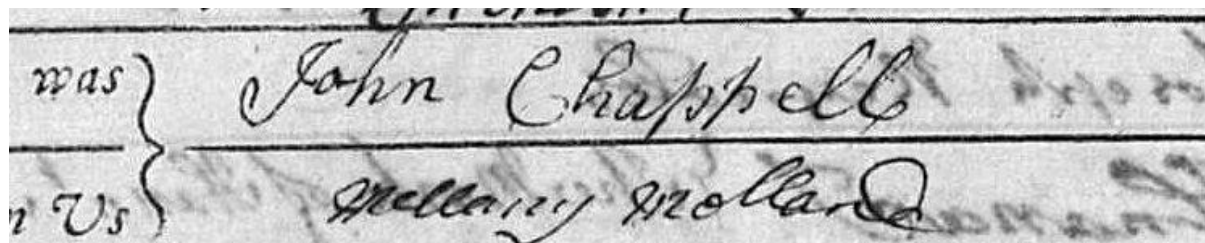 was John Chappell
n Us Mellany Molland